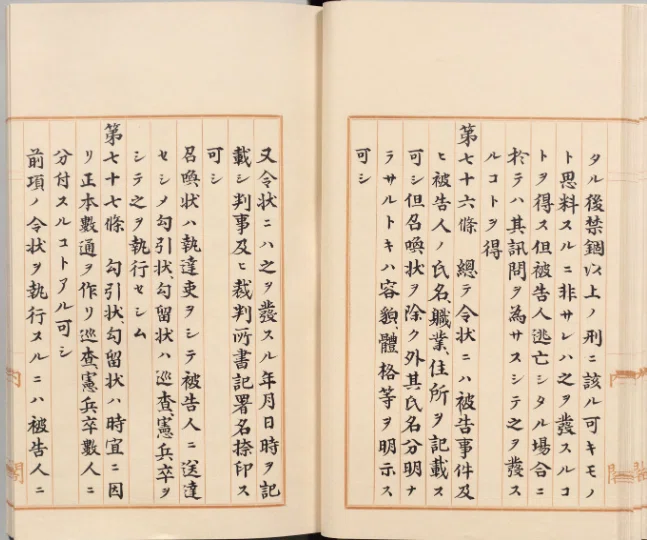 タル後禁錮以上ノ刑ニ該ル可キモノ
ト思料スルニ非サレハ之ヲ發スルコ
トヲ得ス但被告人逃亡シタル場合ニ
於テハ其訊問ヲ為サスシテ之ヲ發ス
ルコトヲ得
第七十六條 總テ令状ニハ被告事件及
ヒ被告人ノ氏名、職業、住所ヲ記載ス
可シ但召喚状ヲ除ク外其氏名分明ナ
ラサルトキハ容貌、體格等ヲ明示ス
可シ
又令状ニハ之ヲ發スル年月日時ヲ記
載シ判事及ヒ裁判所書記署名捺印ス
可シ
召喚状ハ執達吏ヲシテ被告人ニ送達
セシメ勾引状、勾留状ハ巡査、憲兵卒ヲ
シテ之ヲ執行セシム
第七十七條 勾引状勾留状ハ時宜ニ因
リ正本數通ヲ作リ巡査、憲兵卒數人ニ
分付スルコトアル可シ
前項ノ令状ヲ執行スルニハ被告人ニ